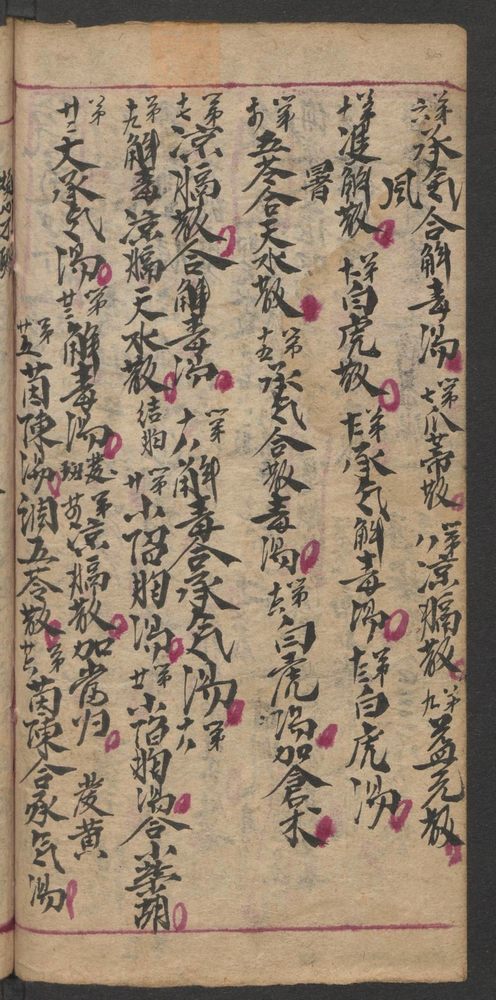 第六承氣合解毒湯 第七瓜蒂散 第八凉膈散 第九益元散
風
第十双解散 第十一白虎散 第十二承气解毒湯 第十三白虎湯
暑
第十四五苓合天水散 第十五承气合散毒湯 第十六白虎湯加倉术
第十七凉膈散合解毒湯 第十八解毒合承气湯 第十八
第十九解毒凉膈天水散 結胸 第廿小陷胸湯 第廿一小陷胸湯合小柴胡
第廿二大承气湯 第廿三解毒湯 發班 第廿四凉膈散加當归 發黄
第廿五茵陳湯調五苓散 第廿六茵陳合承气湯